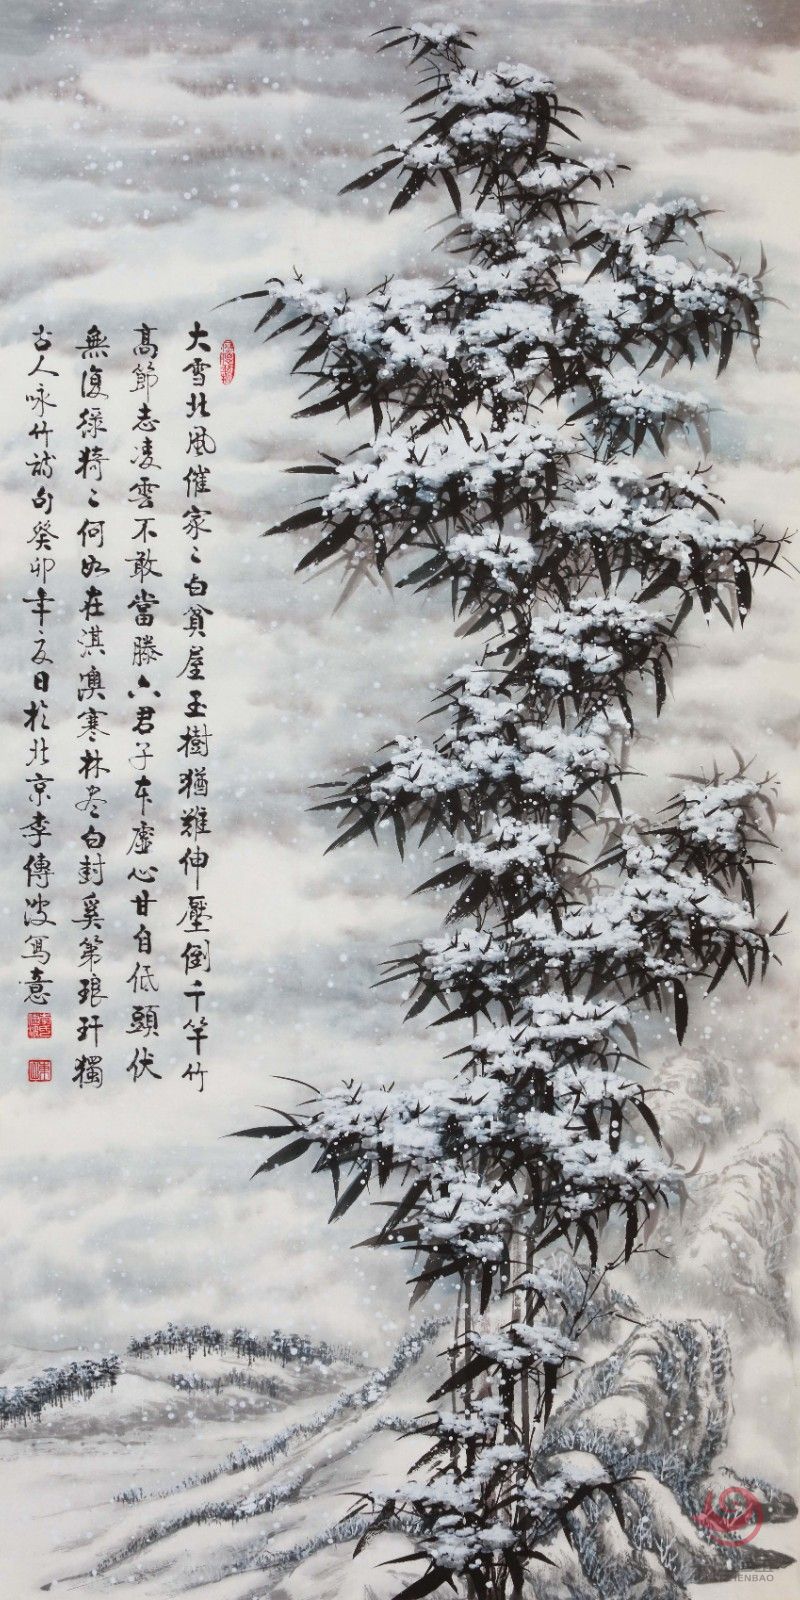 大雪北風催家〻白貧屋玉樹猶難伸壓倒千竿竹
高節志凌雲不敢當滕六君子本虛心甘自低頭伏
無復綠猗〻何如在淇澳寒林盡白封奚第琅玕獨
古人咏竹詩句癸卯年夏日於北京李傳波寫意